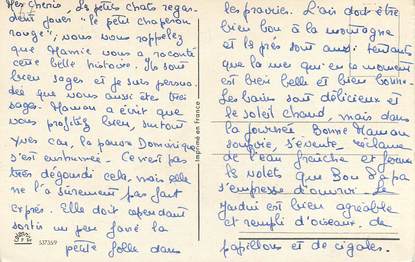 Mes Chéris, les petits chats regar-
dent jouer "le petit chaperon
rouge"; vous vous rappelez
que Mamie vous a raconté
cette belle histoire. Ils sont
bien sages et je suis persua-
dée que vous aussi êtes très
sages. Maman a écrit que
vous profitiez bien, surtout
Yves car, la pauvre Dominique
s'est enrhumée. Ce n'est pas
très dégourdi cela, mais elle
ne l'a sûrement pas fait
exprès. Elle doit cependant
sortir un peu faire la
petite folle dans
537359
Imprimé en France
les prairies. L'air doit être
bien bon à la montagne
et les prés sont aussi tentants
que la mer qui en ce moment
est bien belle et bien bonne.
Les bains sont délicieux et
le soleil chaud, mais dans
la journée Bonne Maman
soupire, s'évente, réclame
de l'eau fraîche et ferme
les volets que Bon Papa
s'empresse d'ouvrir. Le
jardin est bien agréable
et rempli d'oiseaux, de
papillons et de cigales.